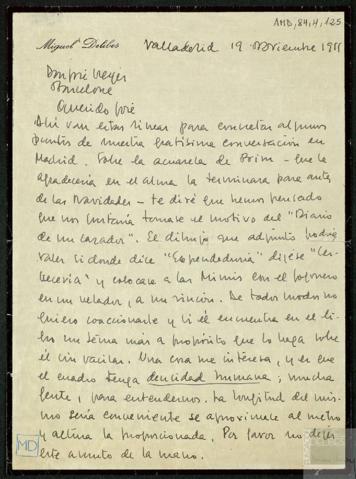 AMD,84,4,125
Miguel Delibes
Valladolid 19 Noviembre 1955
Don José Vergés
Barcelona
Querido José
Ahí van estas líneas para concretar algunos
puntos de nuestra gratísima conversación en
Madrid. Sobre la acuarela de Prim - que le
agradecería en el alma la terminara para antes
de las Navidades - te diré que hemos pensado
que nos gustaría tomase el motivo del "Diario
de un cazador". El dibujo que adjunto podría
valer si donde dice "Expendeduría" dijese "Cer-
vecería" y colocase a las Mimis con el fogonero
en un velador, a un rincón. De todos modos no
quiero coaccionarle y si él encuentra en el li-
bro un tema más a propósito que lo haga sobre
él sin vacilar. Una cosa me interesa, y es que
el cuadro tenga densidad humana; mucha
gente, para entendernos. La longitud del mis-
mo sería conveniente se aproximase al metro
y altura la proporcionada. Por favor no dejes
este asunto de la mano.
MD